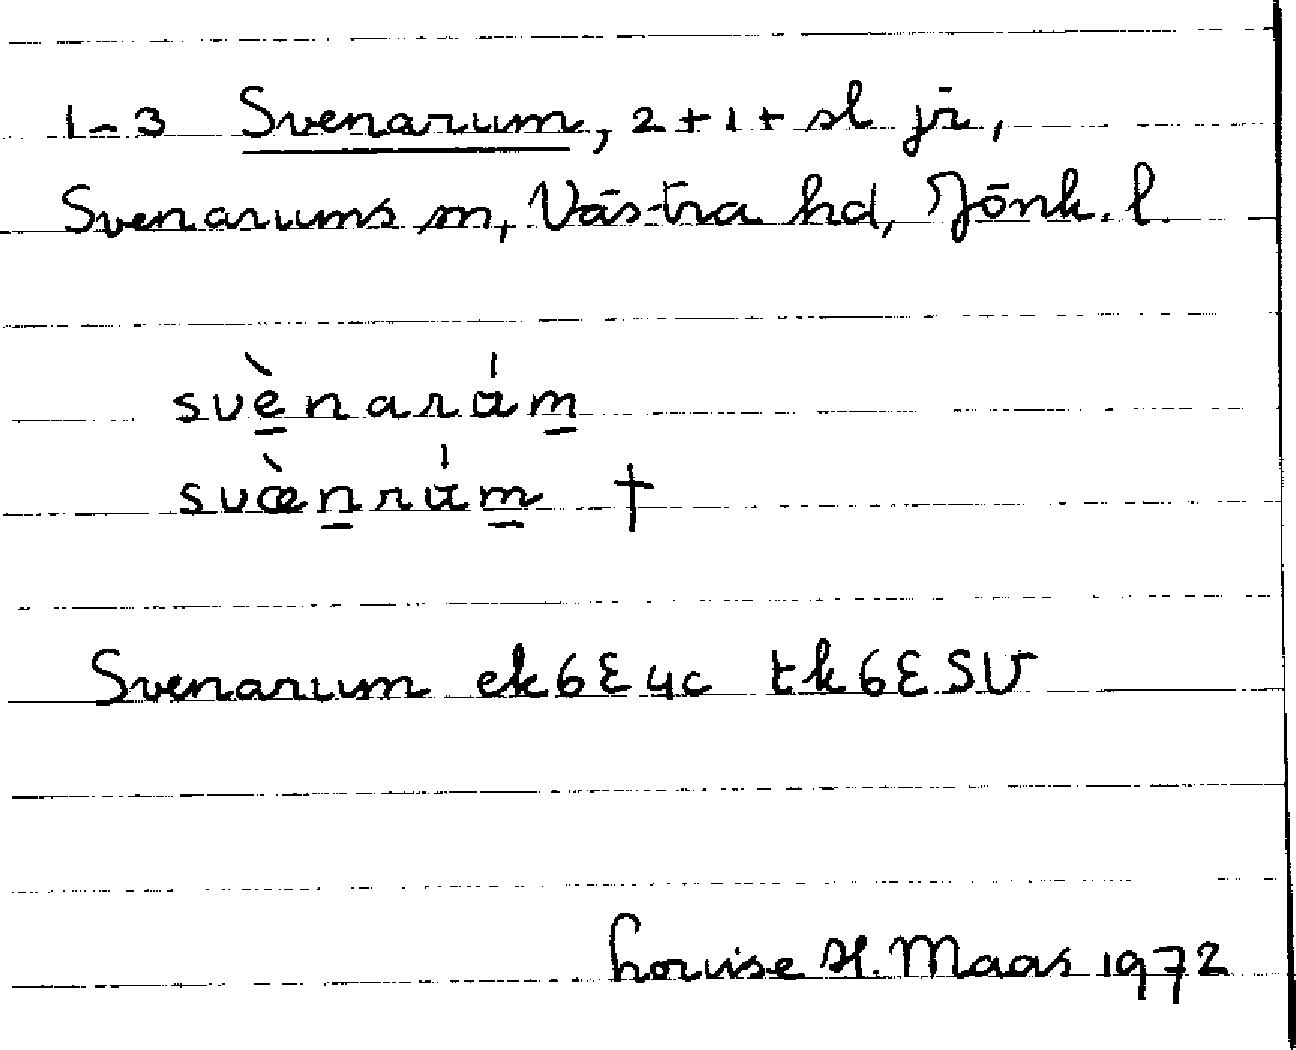 1-3 Svenarum, 2+1+ sl jr,
Svenarums sn, Västra hd, Jönk. l.
svènarám
svænrám †
Svenarum ek6E4c tk6ESV
Louise H. Maas 1972